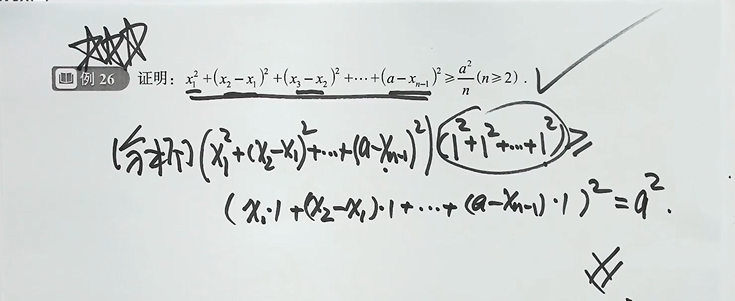 例 26 证明：x₁²+(x₂−x₁)²+(x₃−x₂)²+⋯+(a−xₙ₋₁)²≥a²/n(n≥2).
[分析] (x₁²+(x₂−x₁)²+⋯+(a−xₙ₋₁)²)(1²+1²+⋯+1²)≥
(x₁·1+(x₂−x₁)·1+⋯+(a−xₙ₋₁)·1)²=a².